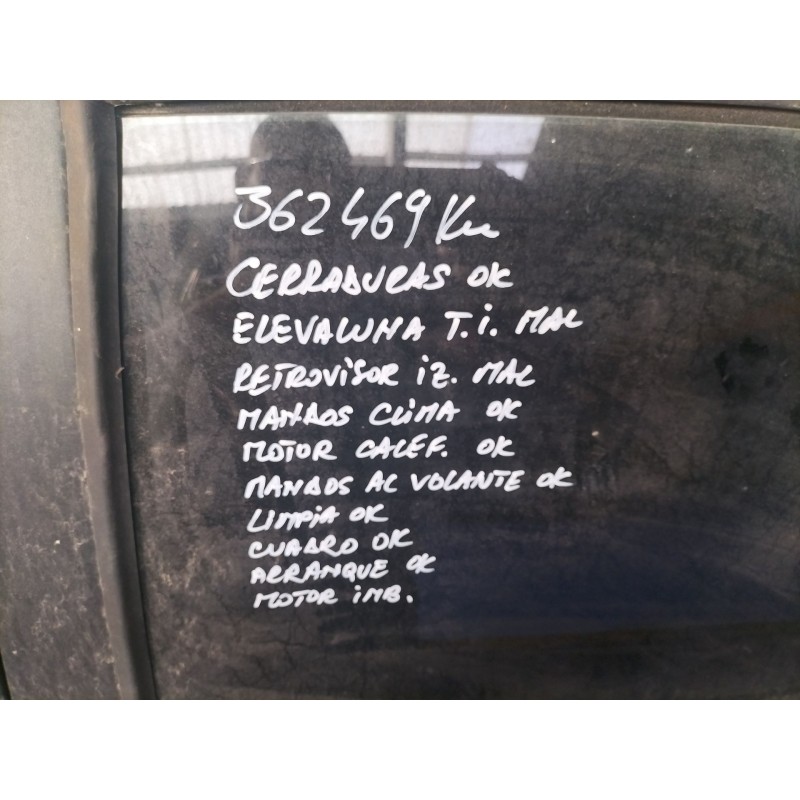 362469 Km
CERRADURAS OK
ELEVALUNA T.i. MAL
RETROVISOR iZ. MAL
MANDOS CLIMA OK
MOTOR CALEF. OK
MANDOS AL VOLANTE OK
LIMPIA OK
CUADRO OK
ARRANQUE OK
MOTOR iNB.